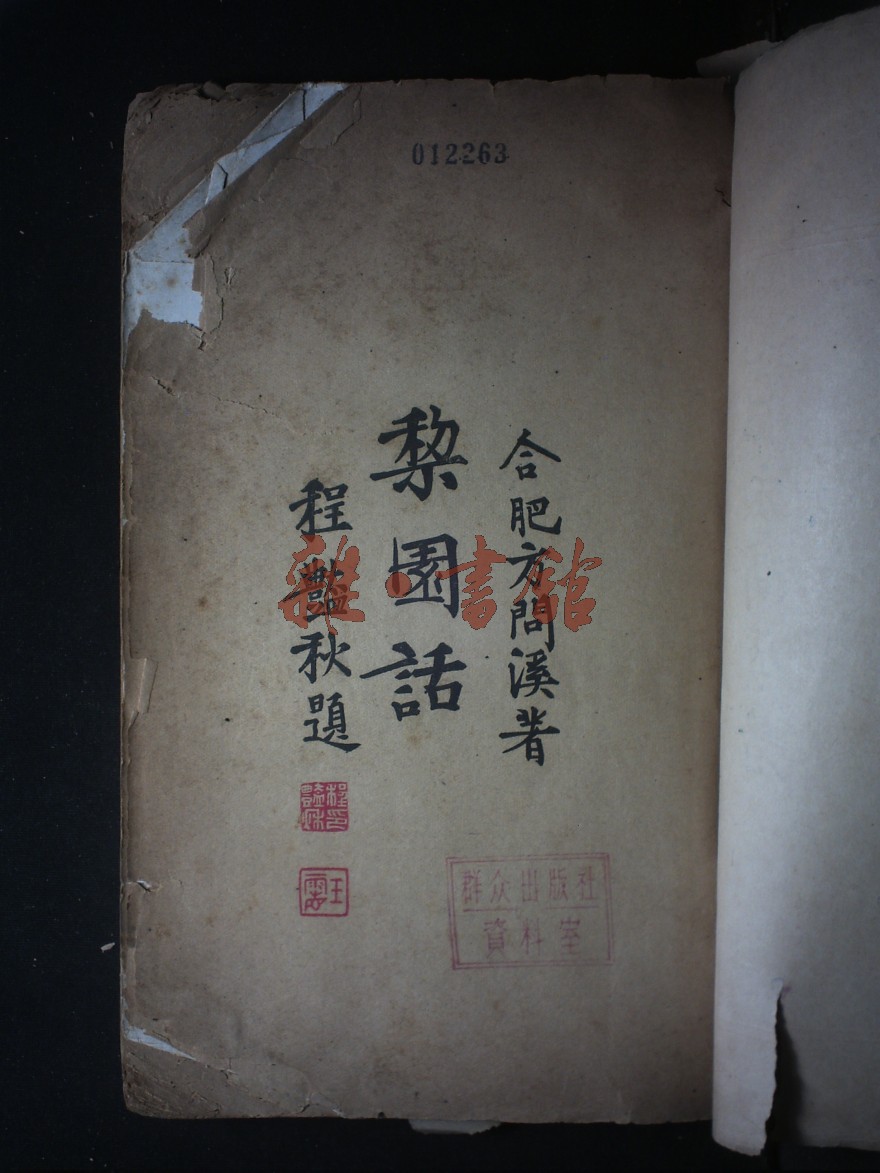 012263
合肥方問溪著
棃園話
程豔秋題
雜·書館
程印豔秋
玉霜
群众出版社
資料室